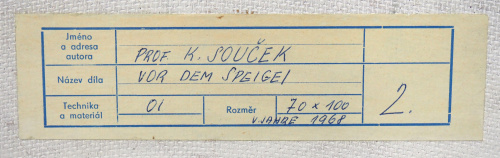 Jméno a adresa autora PROF K. SOUČEK
Název díla VOR DEM SPEIGEL
Technika a materiál Ol Rozměr 70 x 100
V JAHRE 1968
2.